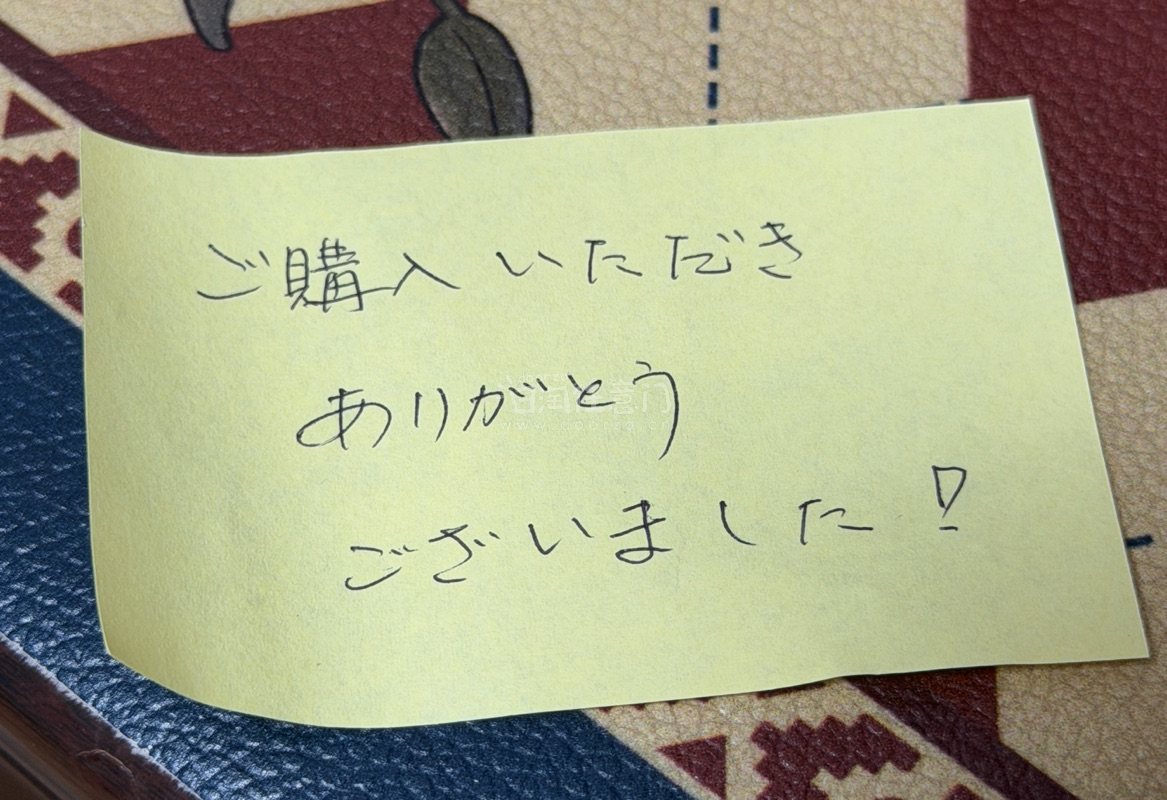 ご購入いただき
ありがとう
ございました!